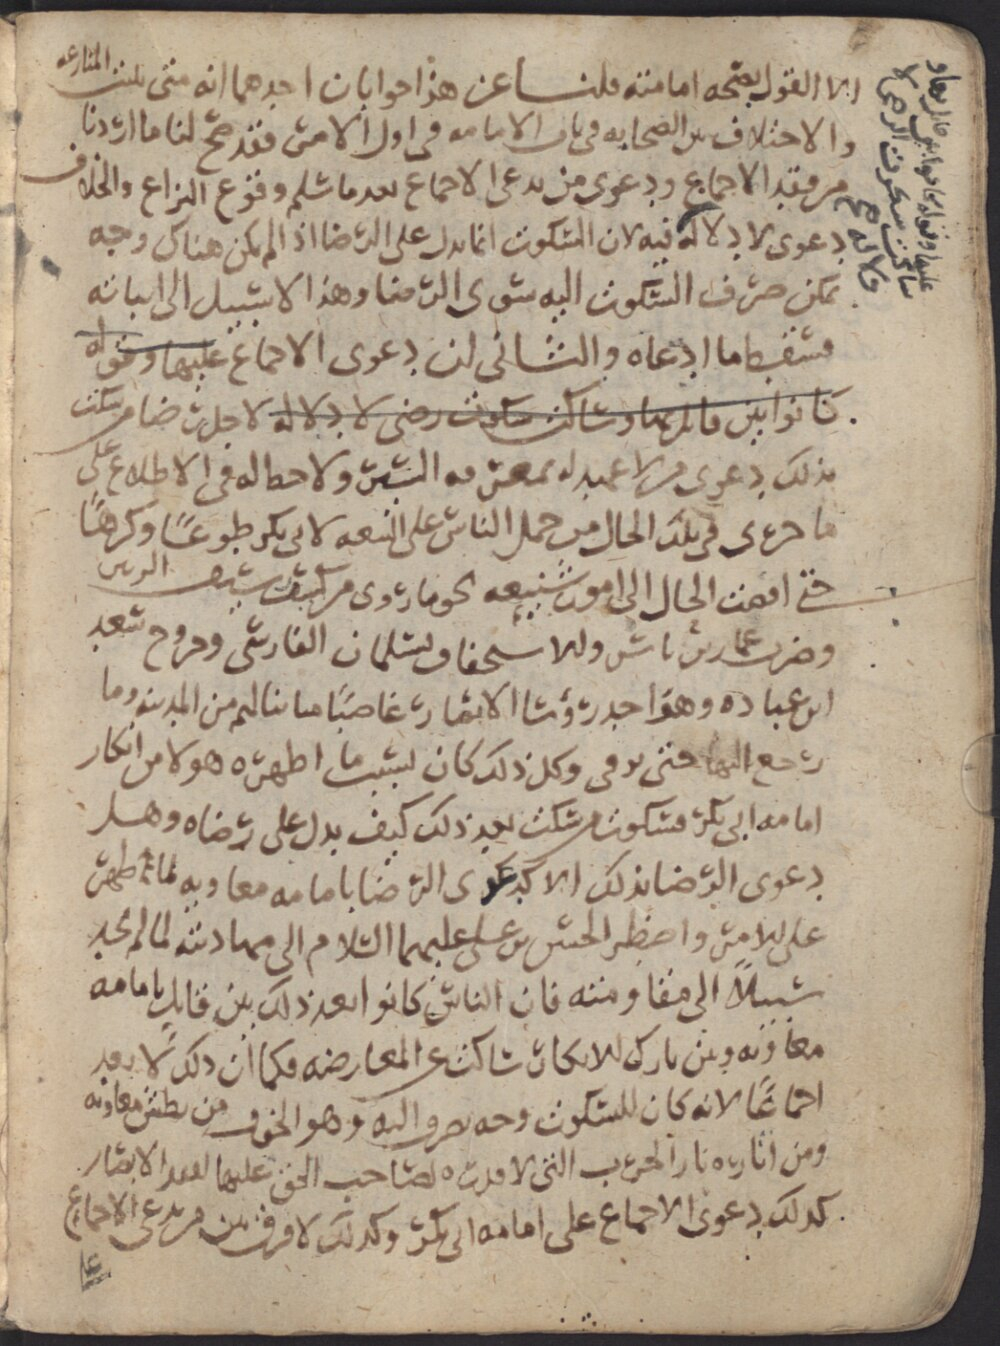 الا القول بصحه امامته قلنا عن هذا جوابان احدهما انه متى ثبت المنازعه
والاختلاف بين الصحابه في باب الامامه في اول الامر فقد صح لنا ما اردنا
من فقد الاجماع ودعوى من يدعي الاجماع بعد ما سلم وقوع النزاع والخلاف
دعوى لا دلاله فيه لان السكوت انما يدل على الرضا اذا لم يكن هناك وجه
يمكن صرف السكوت اليه سوى الرضا وهذا لا سبيل الى ابانته
فسقط ما ادعاه والثاني ان دعوى الاجماع عليها وقوله
كانوا بين قائل بها وساكت سكوت رضى لا دلاله لاجل رضا من سكت
بذلك دعوى من لا عهد له بمعرفه السير ولا احطاله في الاطلاع على
ما جرى في تلك الحال من حمل الناس على البيعه لابي بكر طوعًا وكرهًا
حتى افضت الحال الى امور شنيعه نحو ما روى من كسر سيف الزبير
وضرب عمار بن ياسر والاستخفاف بسلمان الفارسي وخروج سعد
ابن عباده وهو احد رؤسا الانصار غاضبًا مباينا لهم من المدينه وما
رجع اليها حتى توفي وكل ذلك كان بسبب ما اظهره هولا من انكار
امامه ابي بكر فسكوت من سكت بعد ذلك كيف يدل على رضاه وهل
دعوى الرضا بذلك الا كدعوى الرضا بامامه معاويه لما ظهر
على الامر واضطر الحسن بن علي عليهما السلام الى مهادنته لما لم يجد
سبيلاً الى مقاومته فان الناس كانوا بعد ذلك بين قايل بامامه
معاويه وبين تارك للانكار ساكت عن المعارضه فكما ان ذلك لا يعد
اجماعًا لانه كان للسكوت وجه يصرف اليه وهو الخوف من بطش معاويه
ومن اثاره نار الحرب التي لا قدره لصاحب الحق عليها لفقد الانصار
كذلك دعوى الاجماع على امامه ابي بكر وكذلك لا فرق بين من يدعي الاجماع